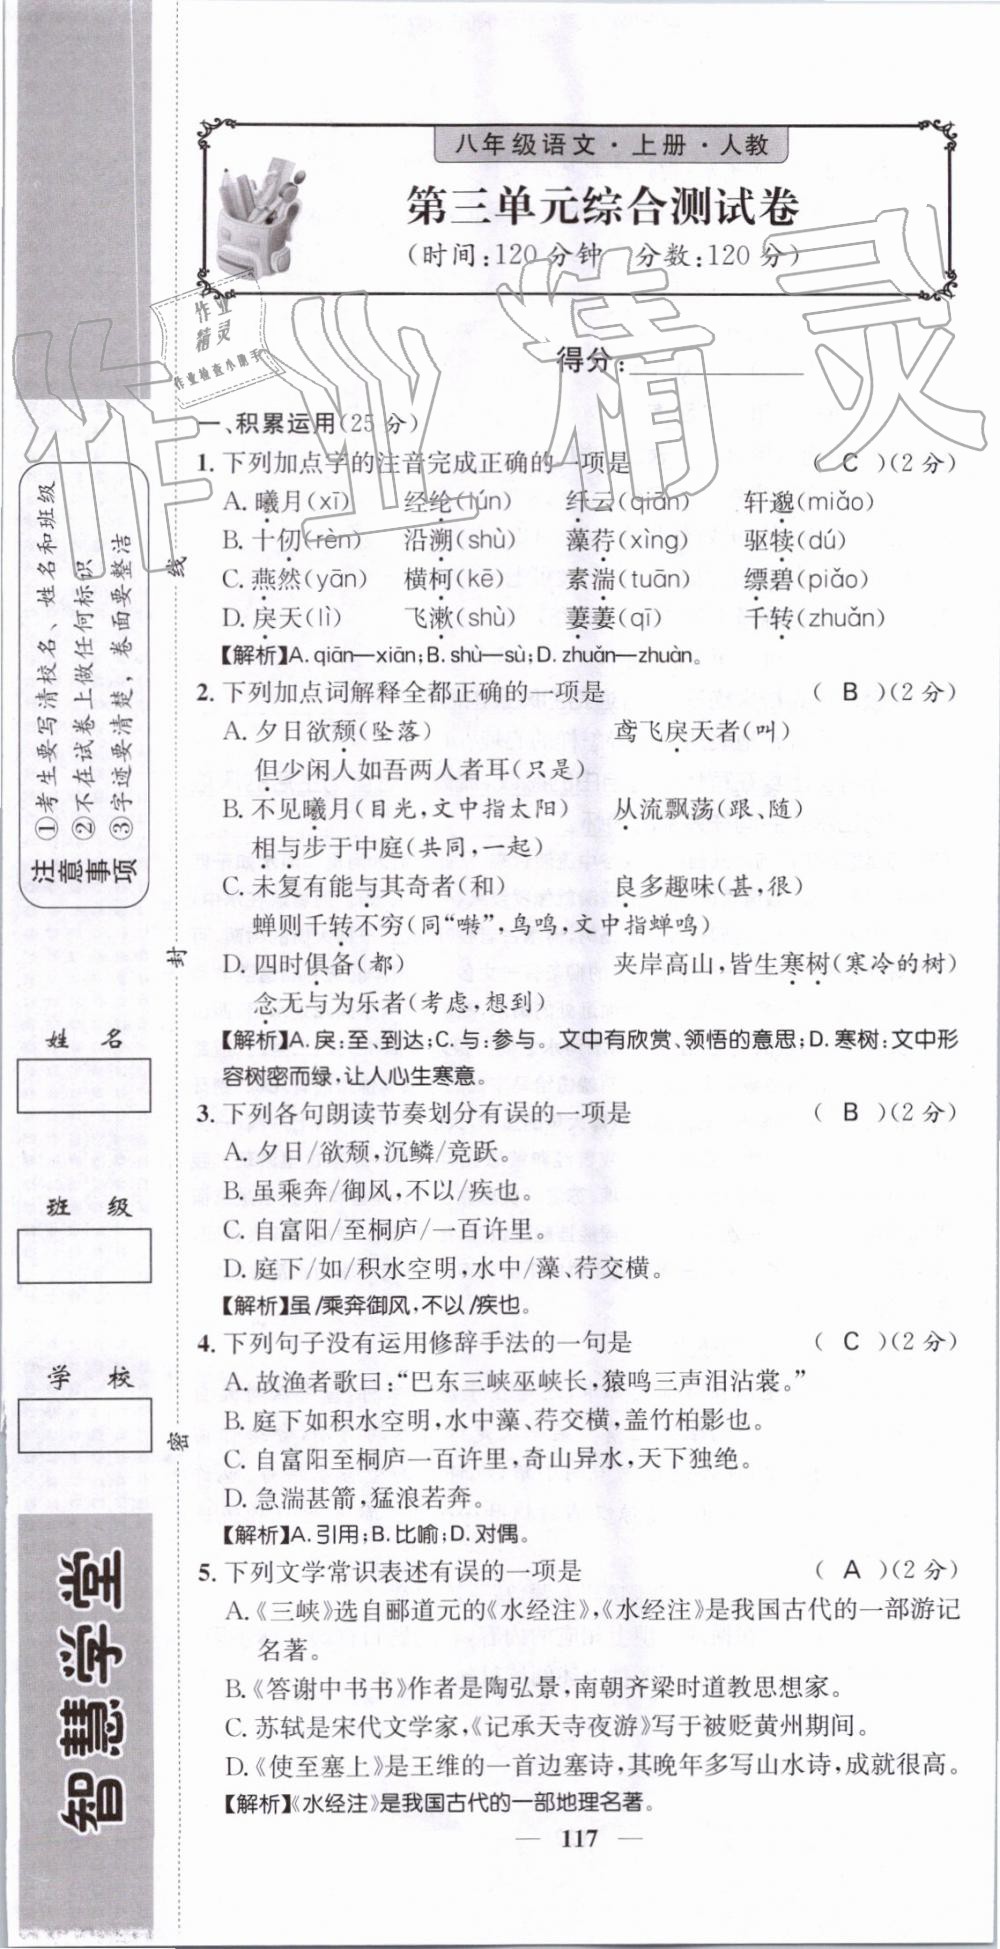 八年级语文·上册·人教
第三单元综合测试卷
(时间:120分钟 分数:120分)
得分:
一、积累运用(25分)
1. 下列加点字的注音完成正确的一项是 ( C )(2分)
A. 曦月(xī) 经纶(lún) 纤云(qiān) 轩邈(miǎo)
B. 十仞(rèn) 沿溯(shù) 藻荇(xìng) 驱犊(dú)
C. 燕然(yān) 横柯(kē) 素湍(tuān) 缥碧(piǎo)
D. 戾天(lì) 飞漱(shù) 萋萋(qī) 千转(zhuǎn)
【解析】A. qiān—xiān;B. shù—sù;D. zhuǎn—zhuàn。
2. 下列加点词解释全都正确的一项是 ( B )(2分)
A. 夕日欲颓(坠落) 鸢飞戾天者(叫)
但少闲人如吾两人者耳(只是)
B. 不见曦月(日光,文中指太阳) 从流飘荡(跟、随)
相与步于中庭(共同,一起)
C. 未复有能与其奇者(和) 良多趣味(甚,很)
蝉则千转不穷(同“啭”,鸟鸣,文中指蝉鸣)
D. 四时俱备(都) 夹岸高山,皆生寒树(寒冷的树)
念无与为乐者(考虑,想到)
【解析】A. 戾:至、到达;C. 与:参与。文中有欣赏、领悟的意思;D. 寒树:文中形
容树密而绿,让人心生寒意。
3. 下列各句朗读节奏划分有误的一项是 ( B )(2分)
A. 夕日/欲颓,沉鳞/竞跃。
B. 虽乘奔/御风,不以/疾也。
C. 自富阳/至桐庐/一百许里。
D. 庭下/如/积水空明,水中/藻、荇交横。
【解析】虽/乘奔御风,不以/疾也。
4. 下列句子没有运用修辞手法的一句是 ( C )(2分)
A. 故渔者歌曰:“巴东三峡巫峡长,猿鸣三声泪沾裳。”
B. 庭下如积水空明,水中藻、荇交横,盖竹柏影也。
C. 自富阳至桐庐一百许里,奇山异水,天下独绝。
D. 急湍甚箭,猛浪若奔。
【解析】A. 引用;B. 比喻;D. 对偶。
5. 下列文学常识表述有误的一项是 ( A )(2分)
A.《三峡》选自郦道元的《水经注》,《水经注》是我国古代的一部游记
名著。
B.《答谢中书书》作者是陶弘景,南朝齐梁时道教思想家。
C. 苏轼是宋代文学家,《记承天寺夜游》写于被贬黄州期间。
D.《使至塞上》是王维的一首边塞诗,其晚年多写山水诗,成就很高。
【解析】《水经注》是我国古代的一部地理名著。
— 117 —
注意事项
①考生要写清校名、姓名和班级
②不在试卷上做任何标识
③字迹要清楚,卷面要整洁
姓 名
班 级
学 校
线
封
密
智慧学堂
作业精灵
作业
精灵
作业检查小助手